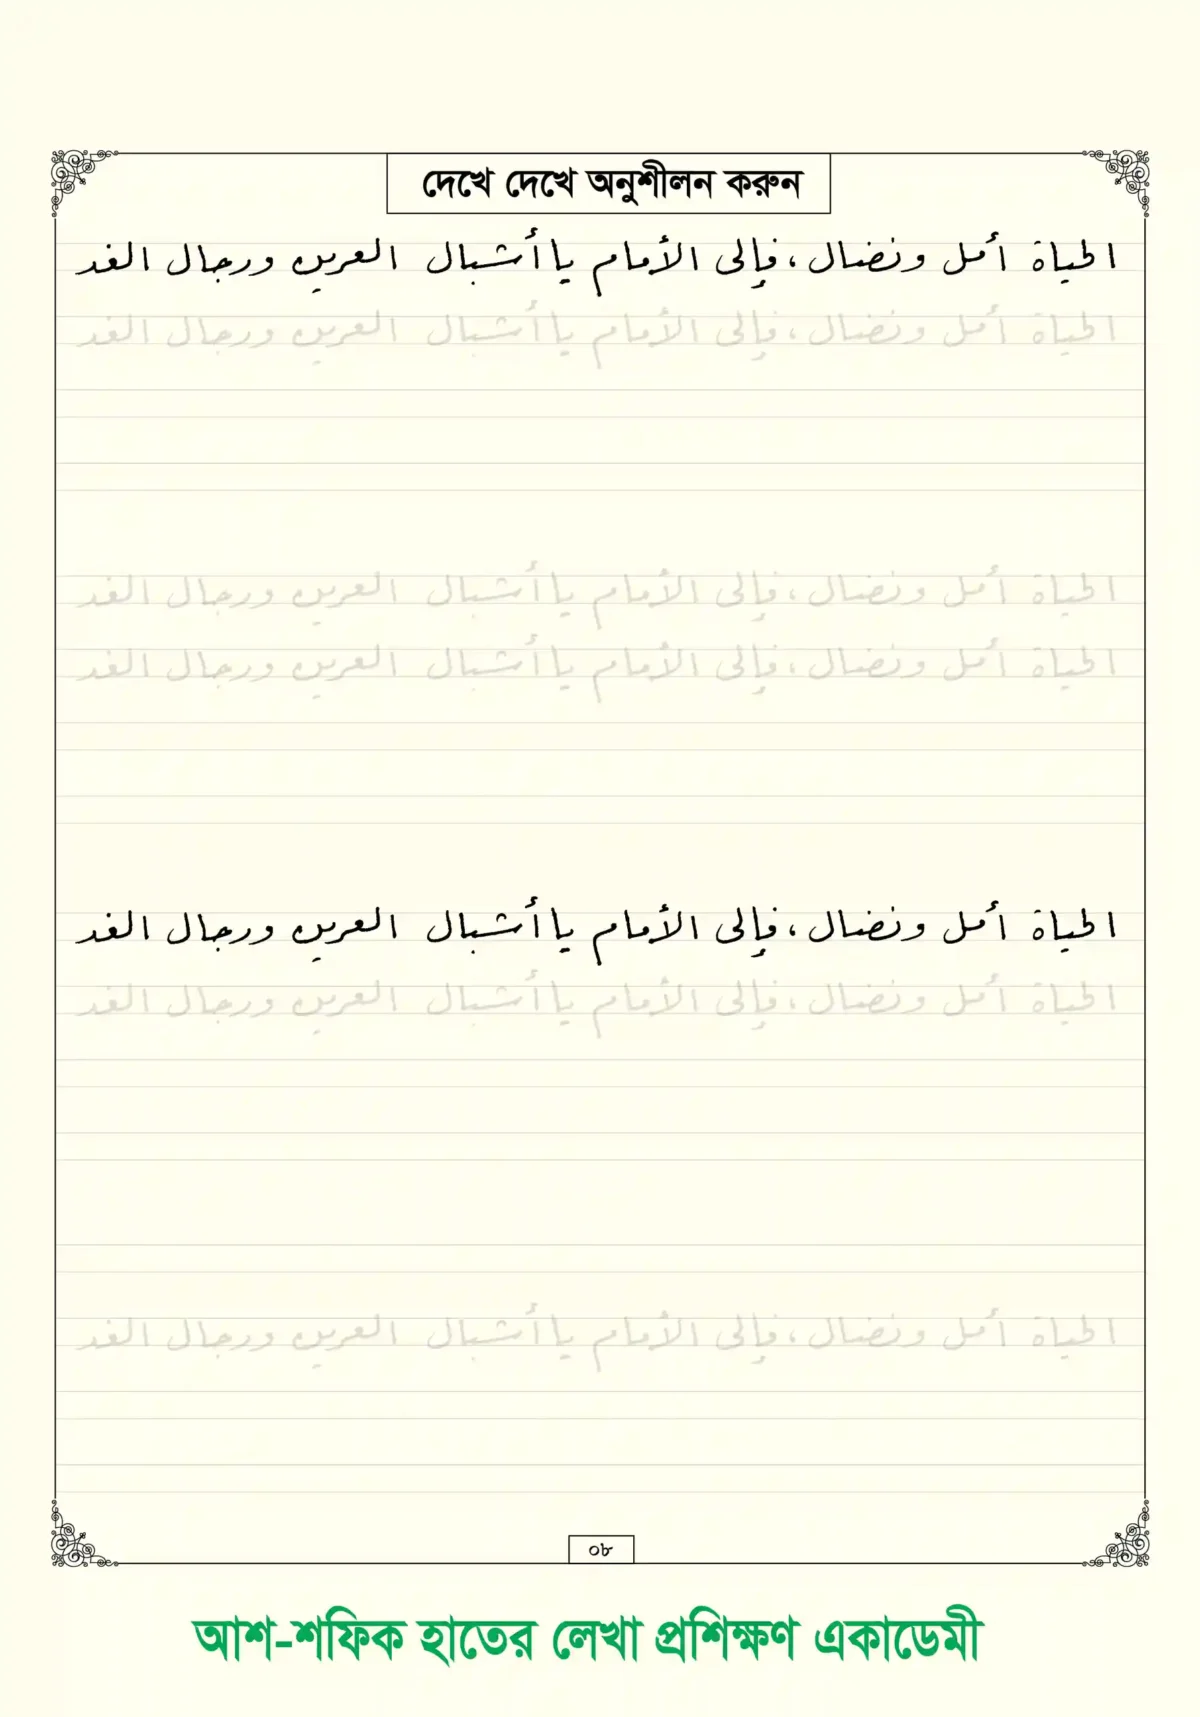 দেখে দেখে অনুশীলন করুন
الحياة أمل ونضال، فإلى الأمام يا أشبال العرين ورجال الغد
الحياة أمل ونضال، فإلى الأمام يا أشبال العرين ورجال الغد
الحياة أمل ونضال، فإلى الأمام يا أشبال العرين ورجال الغد
الحياة أمل ونضال، فإلى الأمام يا أشبال العرين ورجال الغد
الحياة أمل ونضال، فإلى الأمام يا أشبال العرين ورجال الغد
الحياة أمل ونضال، فإلى الأمام يا أشبال العرين ورجال الغد
الحياة أمل ونضال، فإلى الأمام يا أشبال العرين ورجال الغد
০৮
আশ-শফিক হাতের লেখা প্রশিক্ষণ একাডেমী